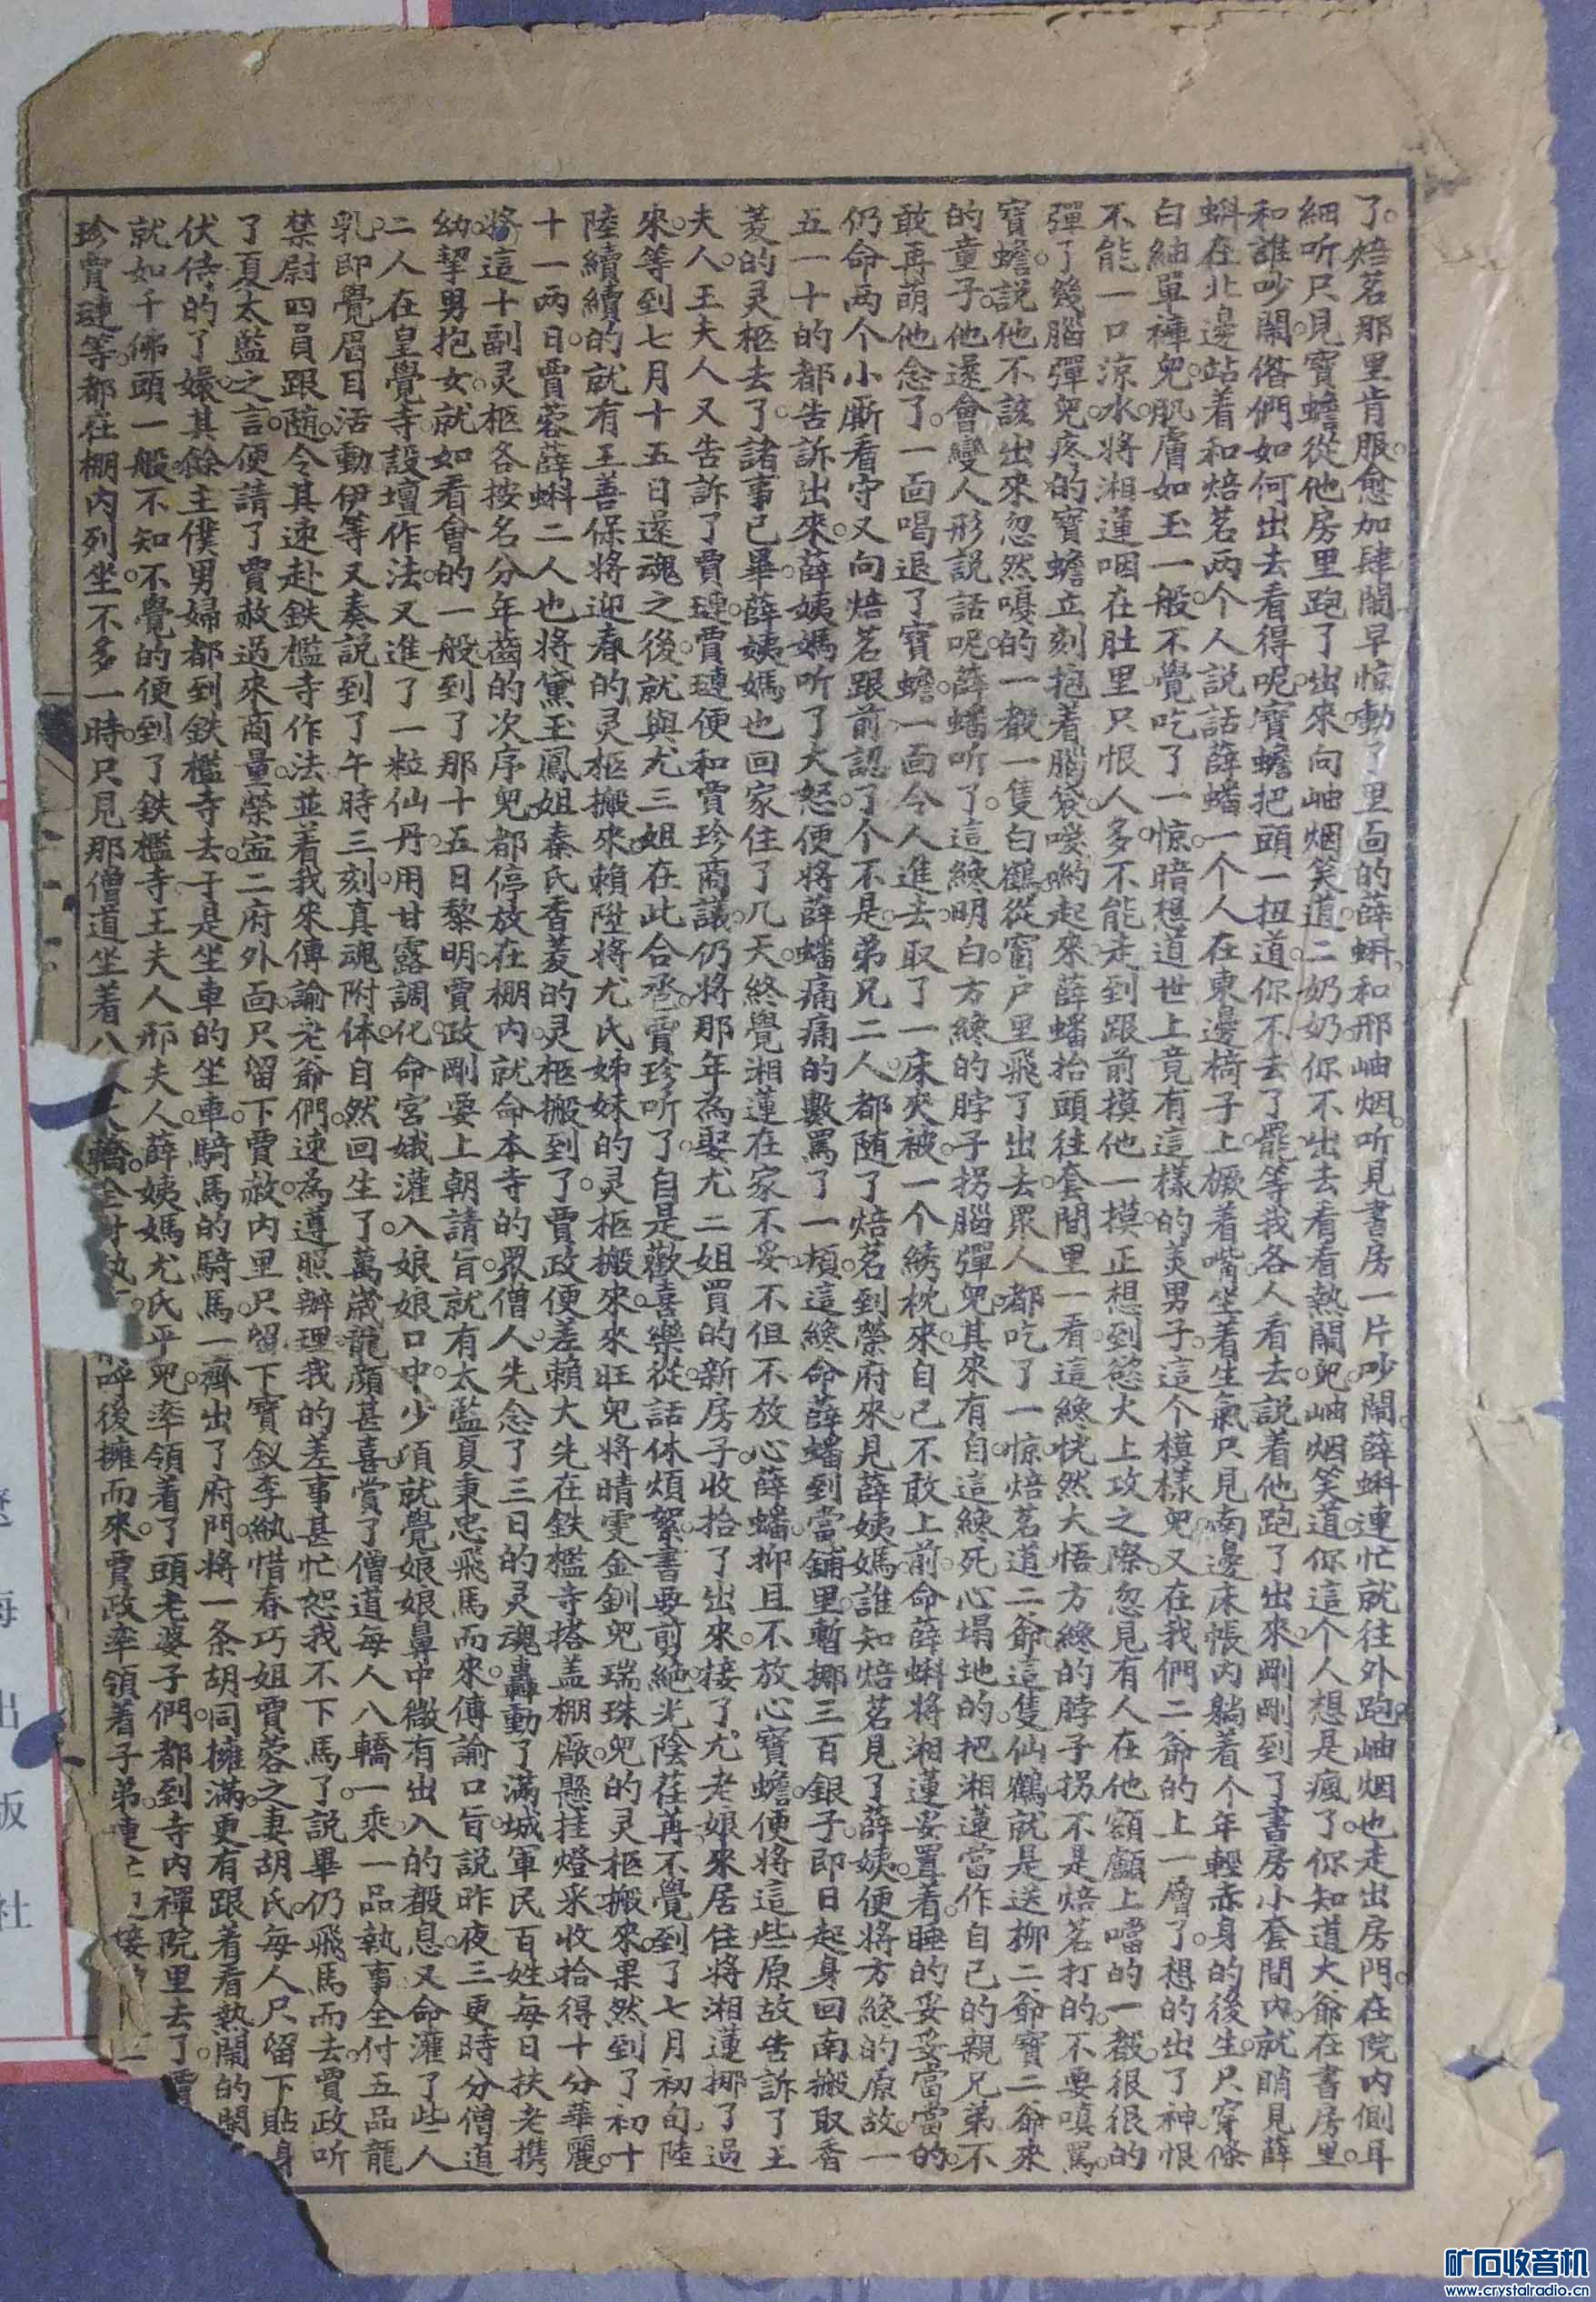 了。焙茗那里肯服。愈加肆閙早惊動了里面的薛蝌和邢岫烟。听見書房一片吵閙。薛蝌連忙就往外跑。岫烟也走出房門。在院内側耳
細听。只見寶蟾從他房里跑了出來向岫烟笑道。二奶奶你不出去看看熱閙兒。岫烟笑道。你這个人想是瘋了。你知道大爺在書房里
和誰吵閙。偺們如何出去看得呢。寶蟾把頭一扭道。你不去了罷。等我各人看去。説着他跑了出來。剛剛到了書房小套間内。就瞧見薛
蝌在北邊站着和焙茗两个人説話薛蟠一个人在東邊椅子上橛着嘴。坐着生氣。只見南邊床帳内躺着个年輕赤身的後生。只穿條
白紬單褲兒。肌膚如玉一般。不覺吃了一惊暗想道世上竟有這樣的美男子。這个模樣兒又在我們二爺的上一層了。想的出了神恨
不能一口涼水將湘蓮咽在肚里只恨人多不能走到跟前摸他一摸。正想到慾火上攻之際。忽見有人在他額顱上噹的一聲。很很的
彈了幾腦彈兒疼的寶蟾立刻抱着腦袋噯喲起來薛蟠抬頭往套間里一看這纔恍然大悟方纔的脖子拐不是焙茗打的。不要嗔罵。
寶蟾説他不該出來忽然嘎的一聲一隻白鶴從窗户里飛了出去眾人都吃了一惊焙茗道二爺這隻仙鶴就是送柳二爺寶二爺來
的童子。他還會變人形説話呢。薛蟠听了。這纔明白方纔的脖子拐腦彈兒。其來有自。這纔死心塌地的把湘蓮當作自己的親兄弟不
敢再萌他念了。一面喝退了寶蟾。一面令人進去取了一床夾被。一个綉枕來。自己不敢上前命薛蝌將湘蓮妥置着睡的妥妥當當的。
仍命两个小厮看守又向焙茗跟前認了个不是。弟兄二人都随了焙茗到榮府來見薛姨媽誰知焙茗見了薛姨便將方纔的原故一
五一十的都告訴出來。薛姨媽听了大怒便將薛蟠痛痛的數罵了一頓。這纔命薛蟠到當舖里暫挪三百銀子。即日起身回南搬取香
菱的灵柩去了。諸事已畢。薛姨媽也回家住了几天。終覺湘蓮在家不妥。不但不放心薛蟠抑且不放心寶蟾。便將這些原故告訴了王
夫人。王夫人又告訴了賈璉。賈璉便和賈珍商議。仍將那年為娶尤二姐買的新房子。收拾了出來。接了尤老娘來居住將湘蓮挪了過
來。等到七月十五日還魂之後。就與尤三姐在此合巹。賈珍听了。自是歡喜樂從。話休煩絮。書要剪絶。光陰荏苒不覺到了七月初旬。陸
陸續續的就有王善保將迎春的灵柩搬來。賴陞將尤氏姊妹的灵柩搬來。來旺兒將晴雯金釧兒瑞珠兒的灵柩搬來。果然到了初十
十一两日。賈蓉薛蝌二人也將黛玉鳳姐秦氏香菱的灵柩搬到了。賈政便差賴大先在鉄檻寺搭盖棚廠。懸挂燈采收拾得十分華麗。
將這十副灵柩各按名分年齒的次序兒。都停放在棚内就命本寺的眾僧人先念了三日的灵魂。轟動了滿城軍民百姓每日扶老携
幼挈男抱女。就如看會的一般。到了那十五日黎明賈政剛要上朝請旨。就有太監夏秉忠飛馬而來。傳諭口旨。説昨夜三更時分僧道
二人在皇覺寺設壇作法。又進了一粒仙丹。用甘露調化命宮娥灌入娘娘口中。少頃就覺娘娘鼻中微有出入的聲息。又命灌了些人
乳即覺眉目活動伊等又奏説到了午時三刻。真魂附体。自然回生了。萬歲龍顔甚喜賞了僧道每人八轎一乘一品執事全付五品龍
禁尉四員跟随。令其速赴鉄檻寺作法並着我來傳諭老爺們。速為遵照辦理我的差事甚忙。恕我不下馬了。説畢仍飛馬而去。賈政听
了夏太監之言。便請了賈赦過來商量。榮寍二府外面只留下賈赦。内里只留下寶釵李紈惜春巧姐賈蓉之妻胡氏。每人只留下貼身
伏侍的了嬛。其餘主僕男婦都到鉄檻寺去。于是坐車的坐車。騎馬的騎馬。一齊出了府門。將一条胡同擁滿。更有跟着看熱閙的閙
就如千佛頭一般。不知不覺的便到了鉄檻寺。王夫人邢夫人薛姨媽尤氏平兒。率領着了頭老婆子們。都到寺内禪院里去了。賈
珍賈璉等。都在棚内列坐。不多一時。只見那僧道坐着八 轎。全付执 呼後擁而來。賈政率領着子弟。連忙 接
矿石收音机
www.crystalradio.cn
出版社